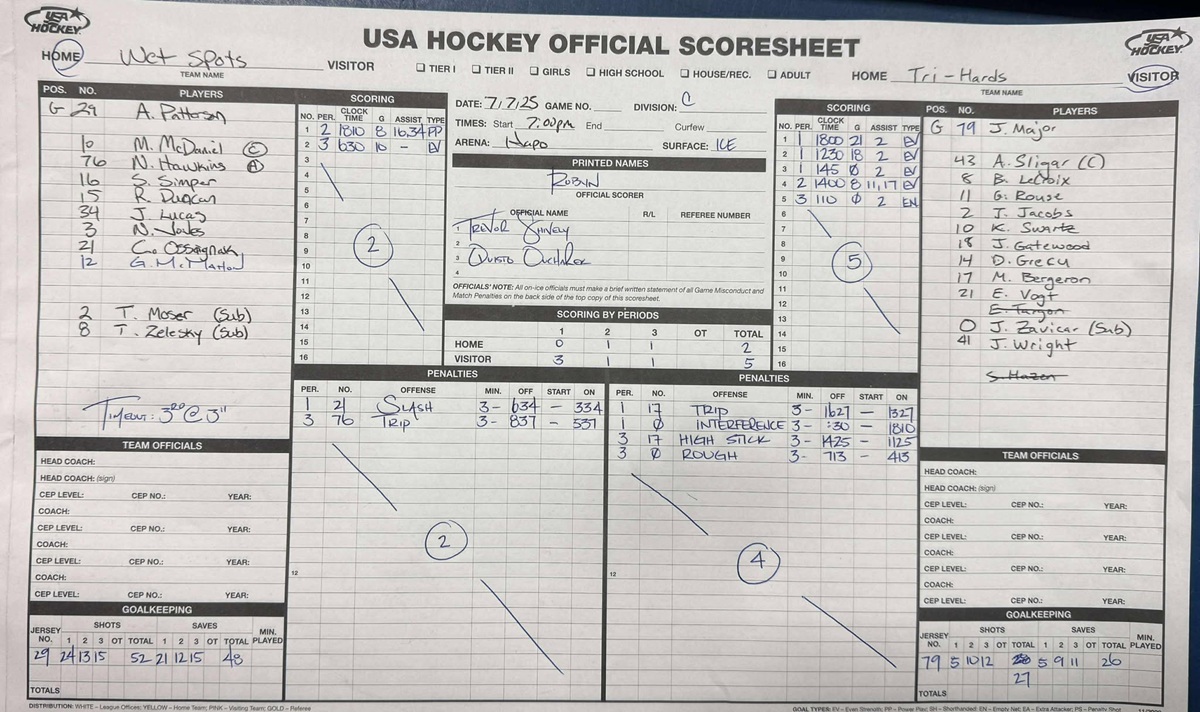 USA HOCKEY
USA HOCKEY OFFICIAL SCORESHEET
USA HOCKEY
HOME Wet Spots VISITOR
TEAM NAME
☐ TIER I ☐ TIER II ☐ GIRLS ☐ HIGH SCHOOL ☐ HOUSE/REC. ☐ ADULT
HOME Tri-Hards VISITOR
TEAM NAME
POS. NO. PLAYERS
G 29 A. Patterson
10 M. McDaniel C
76 N. Hawkins A
16 S. Simper
15 R. Duncan
34 J. Lucas
3 N. Jones
21 C.
12 G.
2 T. Moser (Sub)
8 T. Zelesky (Sub)
TIMEOUT: 3RD @ 3"
SCORING
NO. PER. CLOCK TIME G ASSIST TYPE
1 2 1810 8 16,34 PP
2 3 630 10 - EV
3
4
5
6
7
8
9
10
11
12
13
14
15
16
2
DATE: 7/7/25 GAME NO. DIVISION: C
TIMES: Start 7:00pm End Curfew
ARENA: Hapo SURFACE: ICE
PRINTED NAMES
ROBYN
OFFICIAL SCORER
OFFICIAL NAME R/L REFEREE NUMBER
1 TREVOR
2
3
4
OFFICIALS' NOTE: All on-ice officials must make a brief written statement of all Game Misconduct and
Match Penalties on the back side of the top copy of this scoresheet.
SCORING BY PERIODS
1 2 3 OT TOTAL
HOME 0 1 1 2
VISITOR 3 1 1 5
SCORING
NO. PER. CLOCK TIME G ASSIST TYPE
1 1 1800 21 2 EV
2 1 1230 18 2 EV
3 1 145 Ø 2 EV
4 2 1400 8 11,17 EV
5 3 110 Ø 2 EN
6
7
8
9
10
11
12
13
14
15
16
5
POS. NO. PLAYERS
G 79 J. Major
43 A. Sligar (C)
8 B. LeCroix
11 G. Rouse
2 J. Jacobs
10 K. Swartz
18 J. Gatewood
14 D. Grecu
17 M. Bergeron
21 E. Vogt
E. Targon
0 J. Zavicar (Sub)
41 J. Wright
S. Hazen
PENALTIES
PER. NO. OFFENSE MIN. OFF START ON
1 21 SLASH 3- 634 - 334
3 76 TRIP 3- 837 - 537
12
2
PENALTIES
PER. NO. OFFENSE MIN. OFF START ON
1 17 TRIP 3- 1627 - 1327
1 Ø INTERFERENCE 3- :30 - 1810
3 17 HIGH STICK 3- 1425 - 1125
3 Ø ROUGH 3- 713 - 413
12
4
TEAM OFFICIALS
HEAD COACH:
HEAD COACH: (sign)
CEP LEVEL: CEP NO.: YEAR:
COACH:
CEP LEVEL: CEP NO.: YEAR:
COACH:
CEP LEVEL: CEP NO.: YEAR:
COACH:
CEP LEVEL: CEP NO.: YEAR:
GOALKEEPING
JERSEY NO. SHOTS SAVES MIN. PLAYED
1 2 3 OT TOTAL 1 2 3 OT TOTAL
29 24 13 15 52 21 12 15 48
TOTALS
TEAM OFFICIALS
HEAD COACH:
HEAD COACH: (sign)
CEP LEVEL: CEP NO.: YEAR:
COACH:
CEP LEVEL: CEP NO.: YEAR:
COACH:
CEP LEVEL: CEP NO.: YEAR:
COACH:
CEP LEVEL: CEP NO.: YEAR:
GOALKEEPING
JERSEY NO. SHOTS SAVES MIN. PLAYED
1 2 3 OT TOTAL 1 2 3 OT TOTAL
79 5 10 12 5 9 11 26
27
TOTALS
DISTRIBUTION: WHITE – League Offices; YELLOW – Home Team; PINK – Visiting Team; GOLD – Referee
GOAL TYPES: EV – Even Strength; PP – Power Play; SH – Shorthanded; EN – Empty Net; EA – Extra Attacker; PS – Penalty Shot